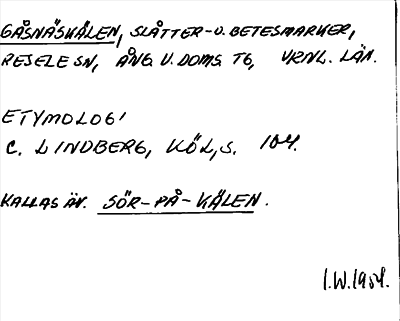 GÅSNÄSKÄLEN, SLÅTTER- O. BETESMARKER,
RESELE SN, ÅNG. V. DOMS. TG, VRNL. LÄN.
ETYMOLOGI
C. LINDBERG, KÖL, S. 104.
KALLAS ÄV. SÖR-PÅ-KÄLEN.
I.W. 1954.